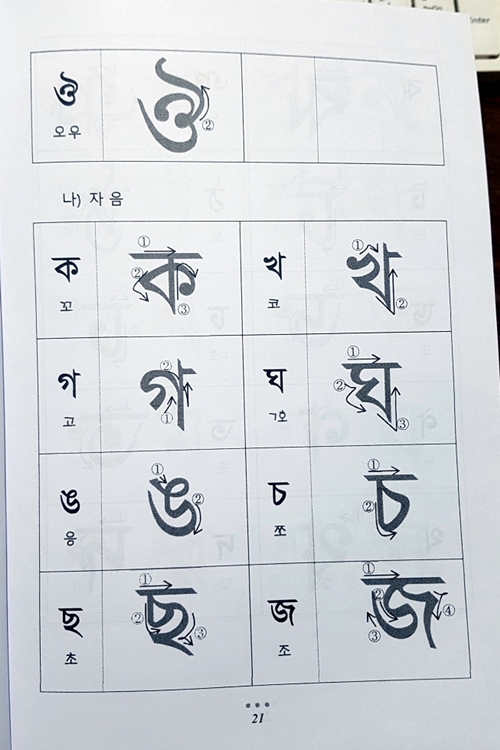 ঔ ঔ ②
오우
나) 자 음
ক ① ② ③ ক খ ① ② খ
꼬 코
গ ② ① গ ঘ ① ② ③ ঘ
고 ㄱ호
ঙ ① ② ঙ চ ① ② চ
응 쪼
ছ ① ② ③ ছ জ ① ② ③ ④ জ
초 조
21